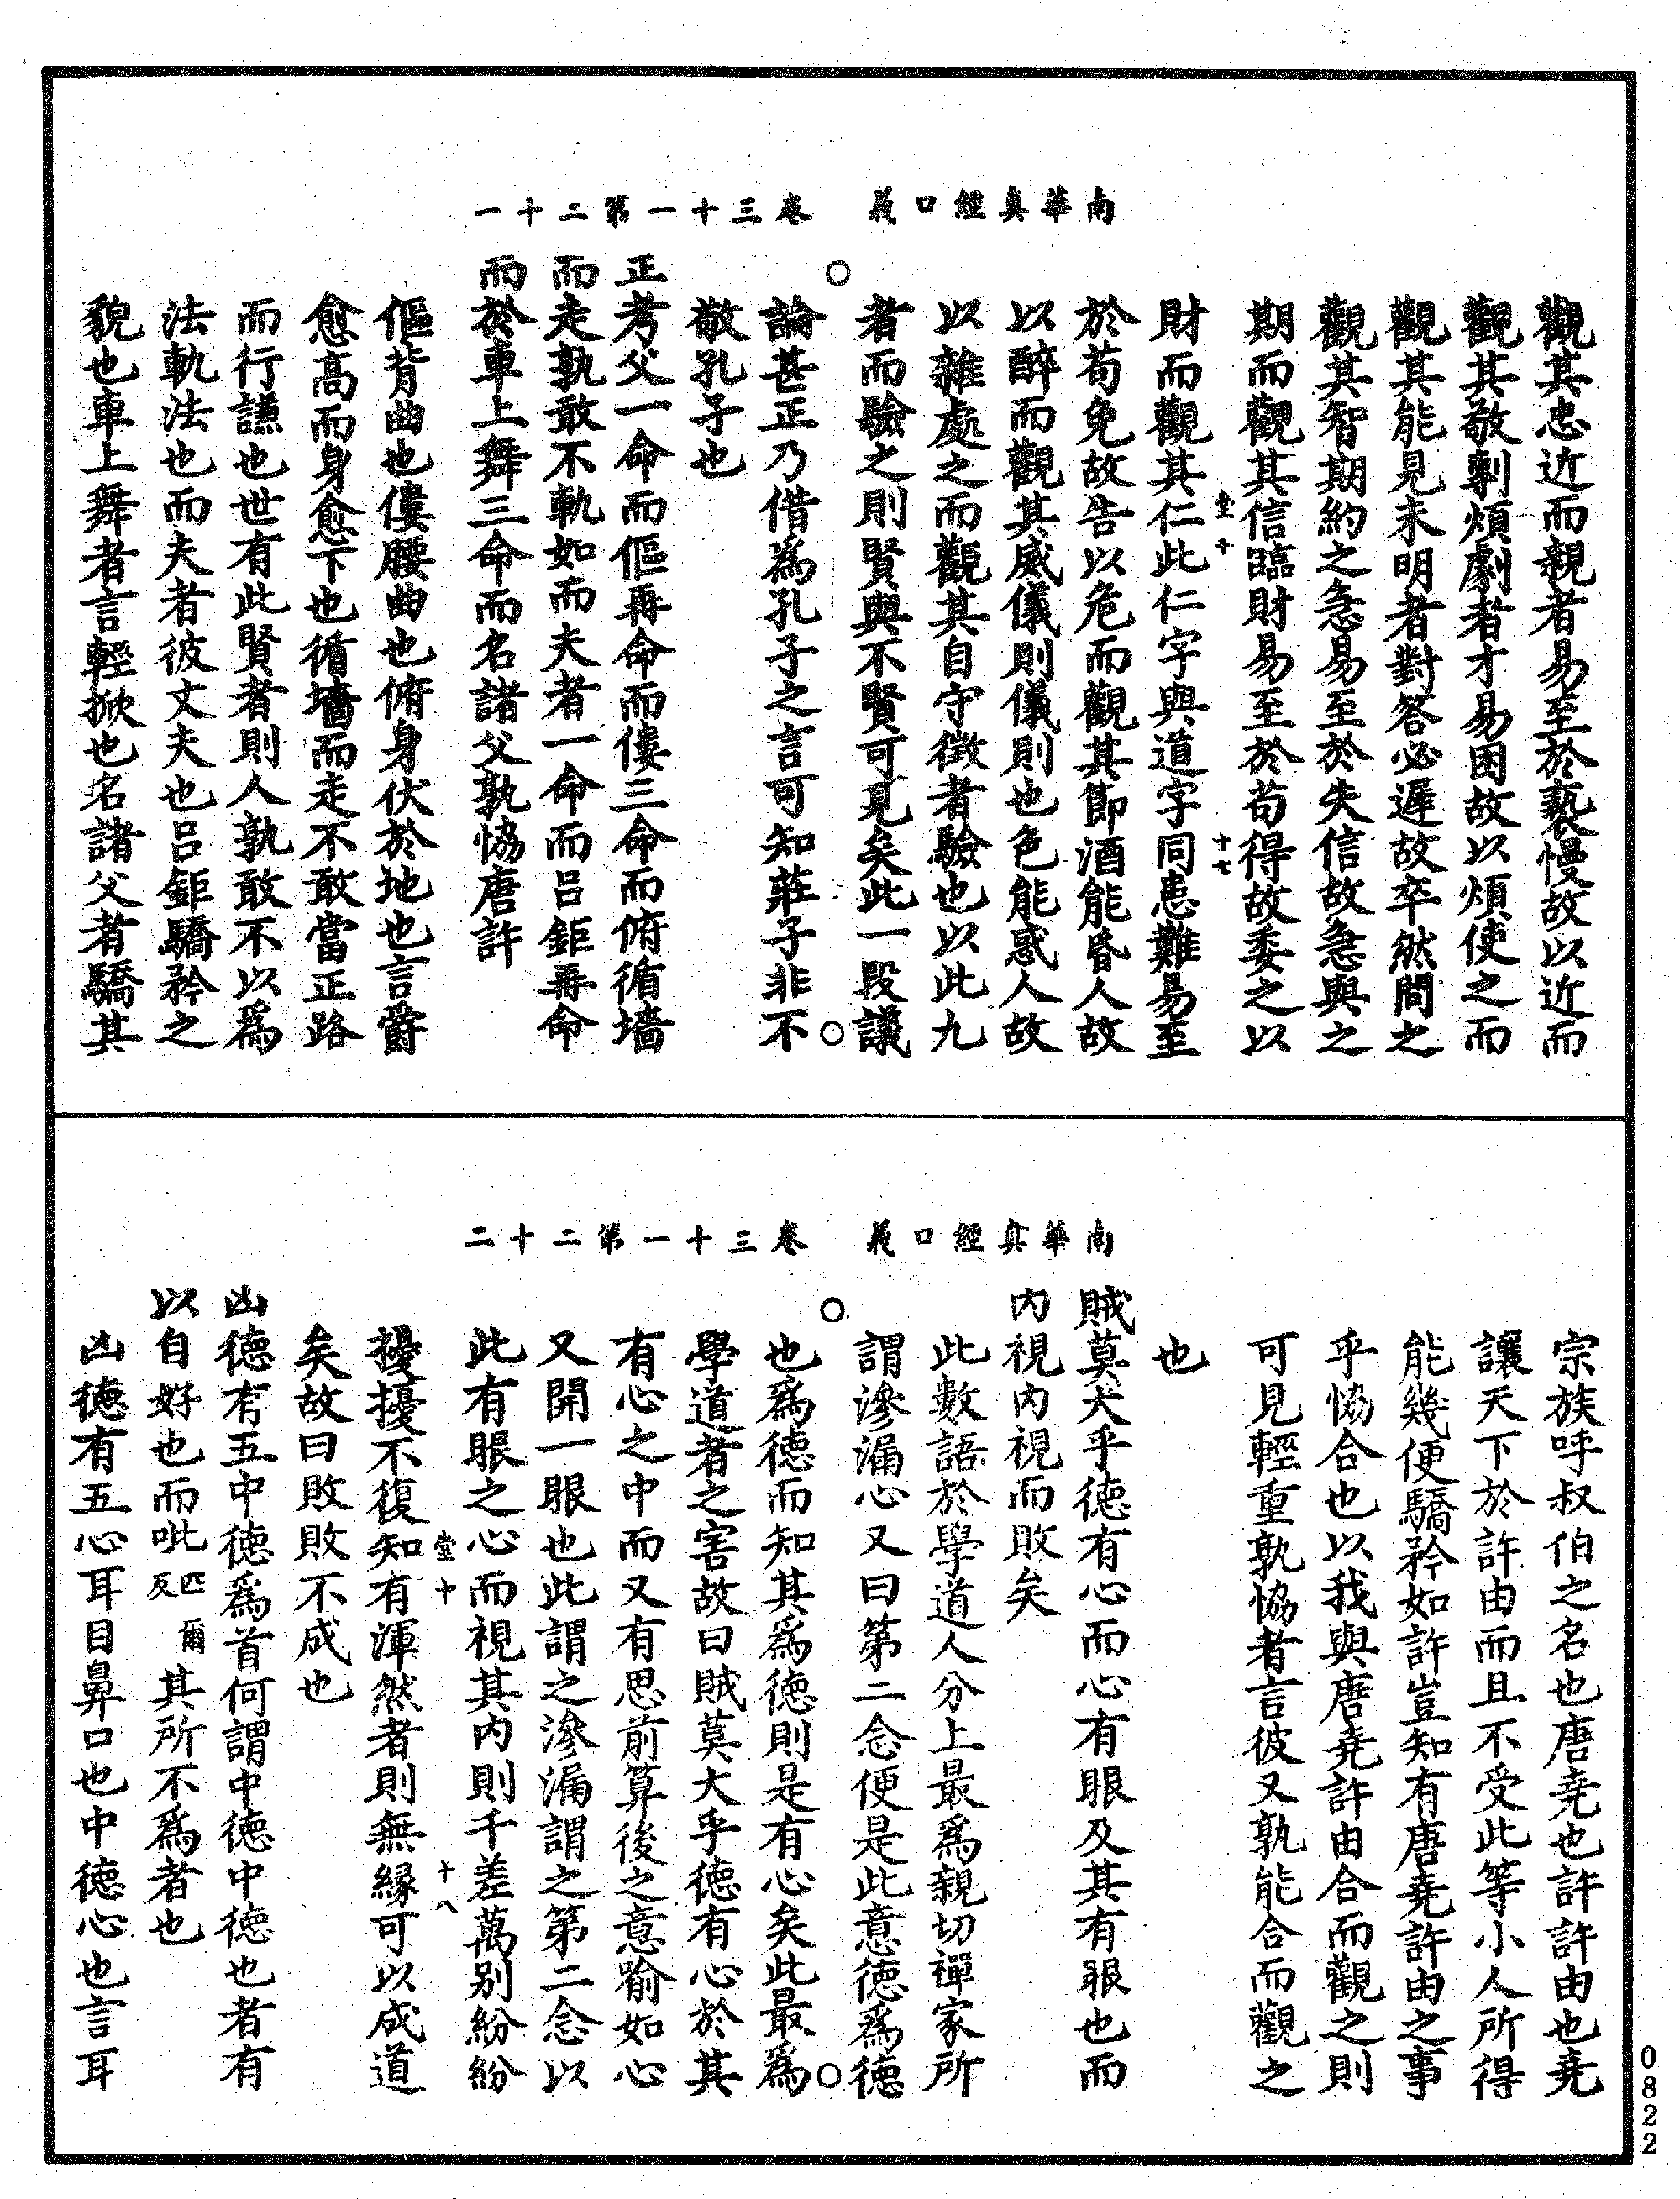 南華真經口義　卷三十一第二十一
觀其忠近而親者易至於褻慢故以近而
觀其敬剸煩劇者才易困故以煩使之而
觀其能見未明者對答必遲故卒然問之
觀其智期約之急易至於失信故急與之
期而觀其信臨財易至於苟得故委之以
堂十　十七
財而觀其仁此仁字與道字同患難易至
於苟免故告以危而觀其節酒能昏人故
以醉而觀其威儀則儀則也色能惑人故
以雜處之而觀其自守徵者驗也以此九
者而驗之則賢與不賢可見矣此一段議
論甚正乃借爲孔子之言可知莊子非不
敬孔子也
正考父一命而傴再命而僂三命而俯循墻
而走孰敢不軌如而夫者一命而呂鉅再命
而於車上舞三命而名諸父孰恊唐許
傴背曲也僂腰曲也俯身伏於地也言爵
愈高而身愈下也循墻而走不敢當正路
而行謙也世有此賢者則人孰敢不以爲
法軌法也而夫者彼丈夫也呂鉅驕矜之
貌也車上舞者言輕掀也名諸父者驕其
南華真經口義　卷三十一第二十二
宗族呼叔伯之名也唐堯也許許由也堯
讓天下於許由而且不受此等小人所得
能幾便驕矜如許豈知有唐堯許由之事
乎恊合也以我與唐堯許由合而觀之則
可見輕重孰恊者言彼又孰能合而觀之
也
賊莫大乎德有心而心有眼及其有眼也而
內視內視而敗矣
此數語於學道人分上最爲親切禪家所
謂滲漏心又曰第二念便是此意德爲德
也爲德而知其爲德則是有心矣此最爲
學道者之害故曰賊莫大乎德有心於其
有心之中而又有思前算後之意喻如心
又開一眼也此謂之滲漏謂之第二念以
此有眼之心而視其內則千差萬別紛紛
堂十　十八
擾擾不復知有渾然者則無緣可以成道
矣故曰敗敗不成也
凶德有五中德爲首何謂中德中德也者有
以自好也而吡匹爾反其所不爲者也
凶德有五心耳目鼻口也中德心也言耳
0822